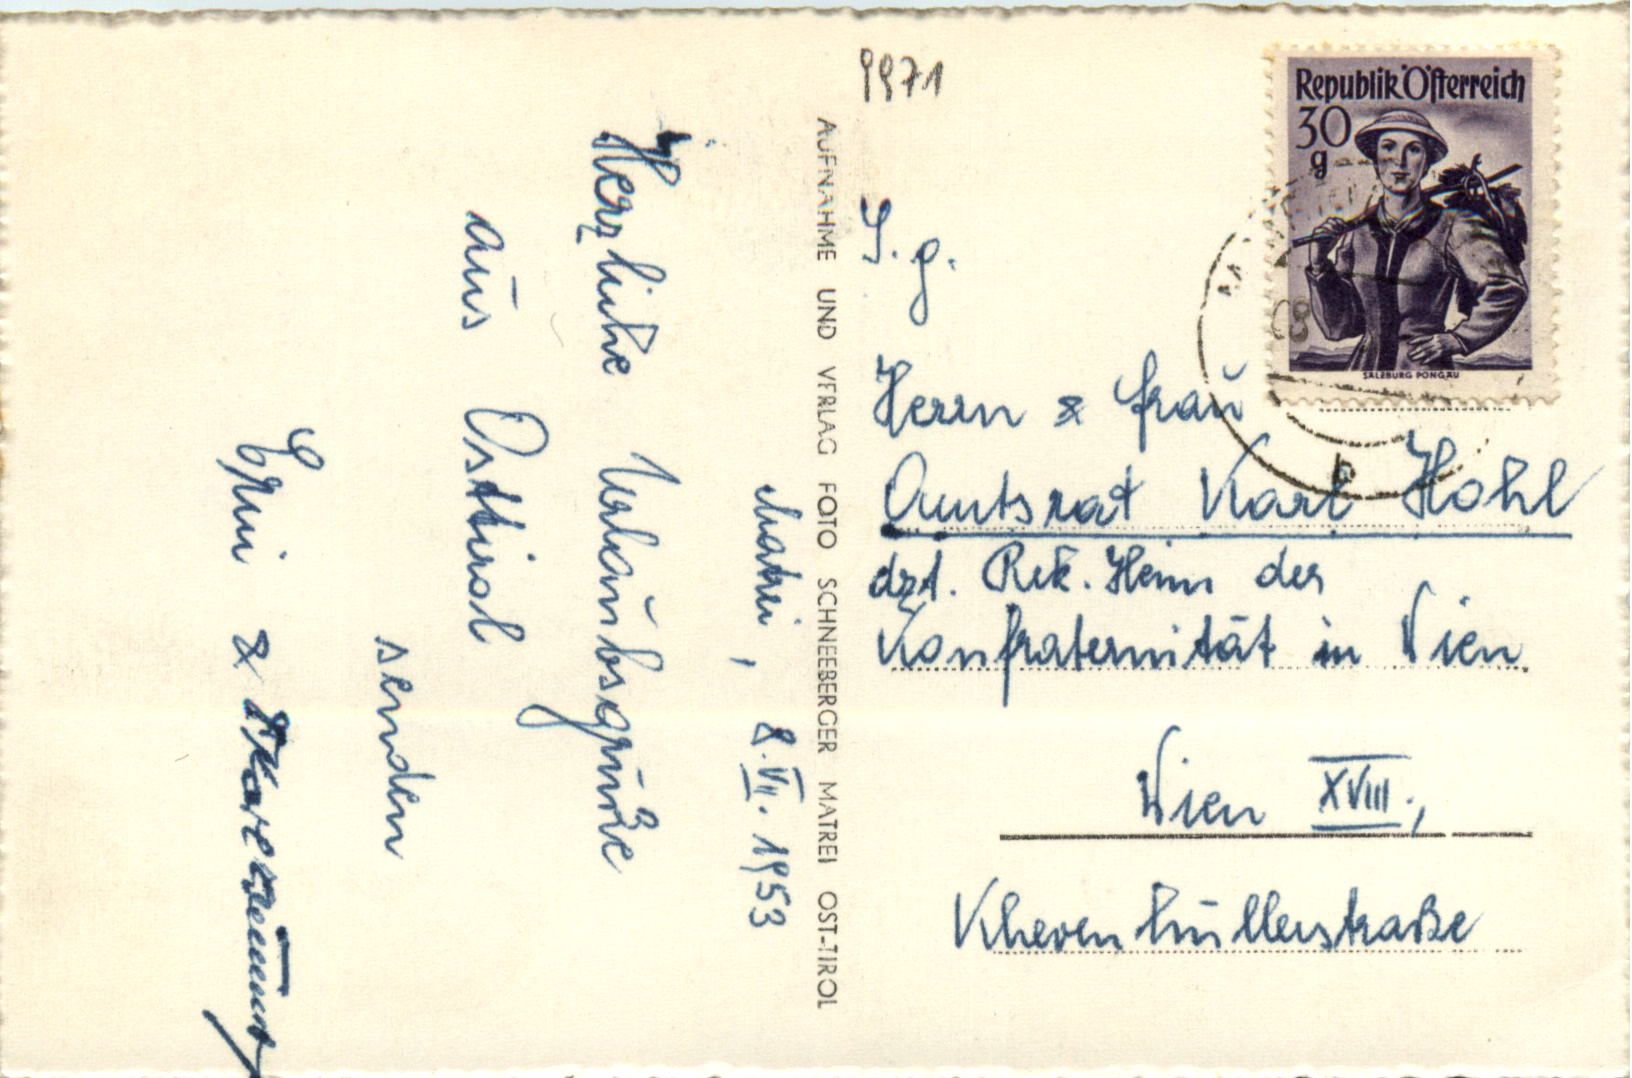 9971
Republik Österreich
30
g
SALZBURG PONGAU
Matrei, 8. VII. 1953
Herzliche Urlaubsgrüße
aus Osttirol
senden
Erni &
AUFNAHME UND VERLAG FOTO SCHNEEBERGER MATREI OST-TIROL
S. g.
Herrn & Frau
Amtsrat Karl Hohl
dzt. Rek. Heim der
Konfraternität in Wien
Wien XVIII.,
Khevenhüllerstraße